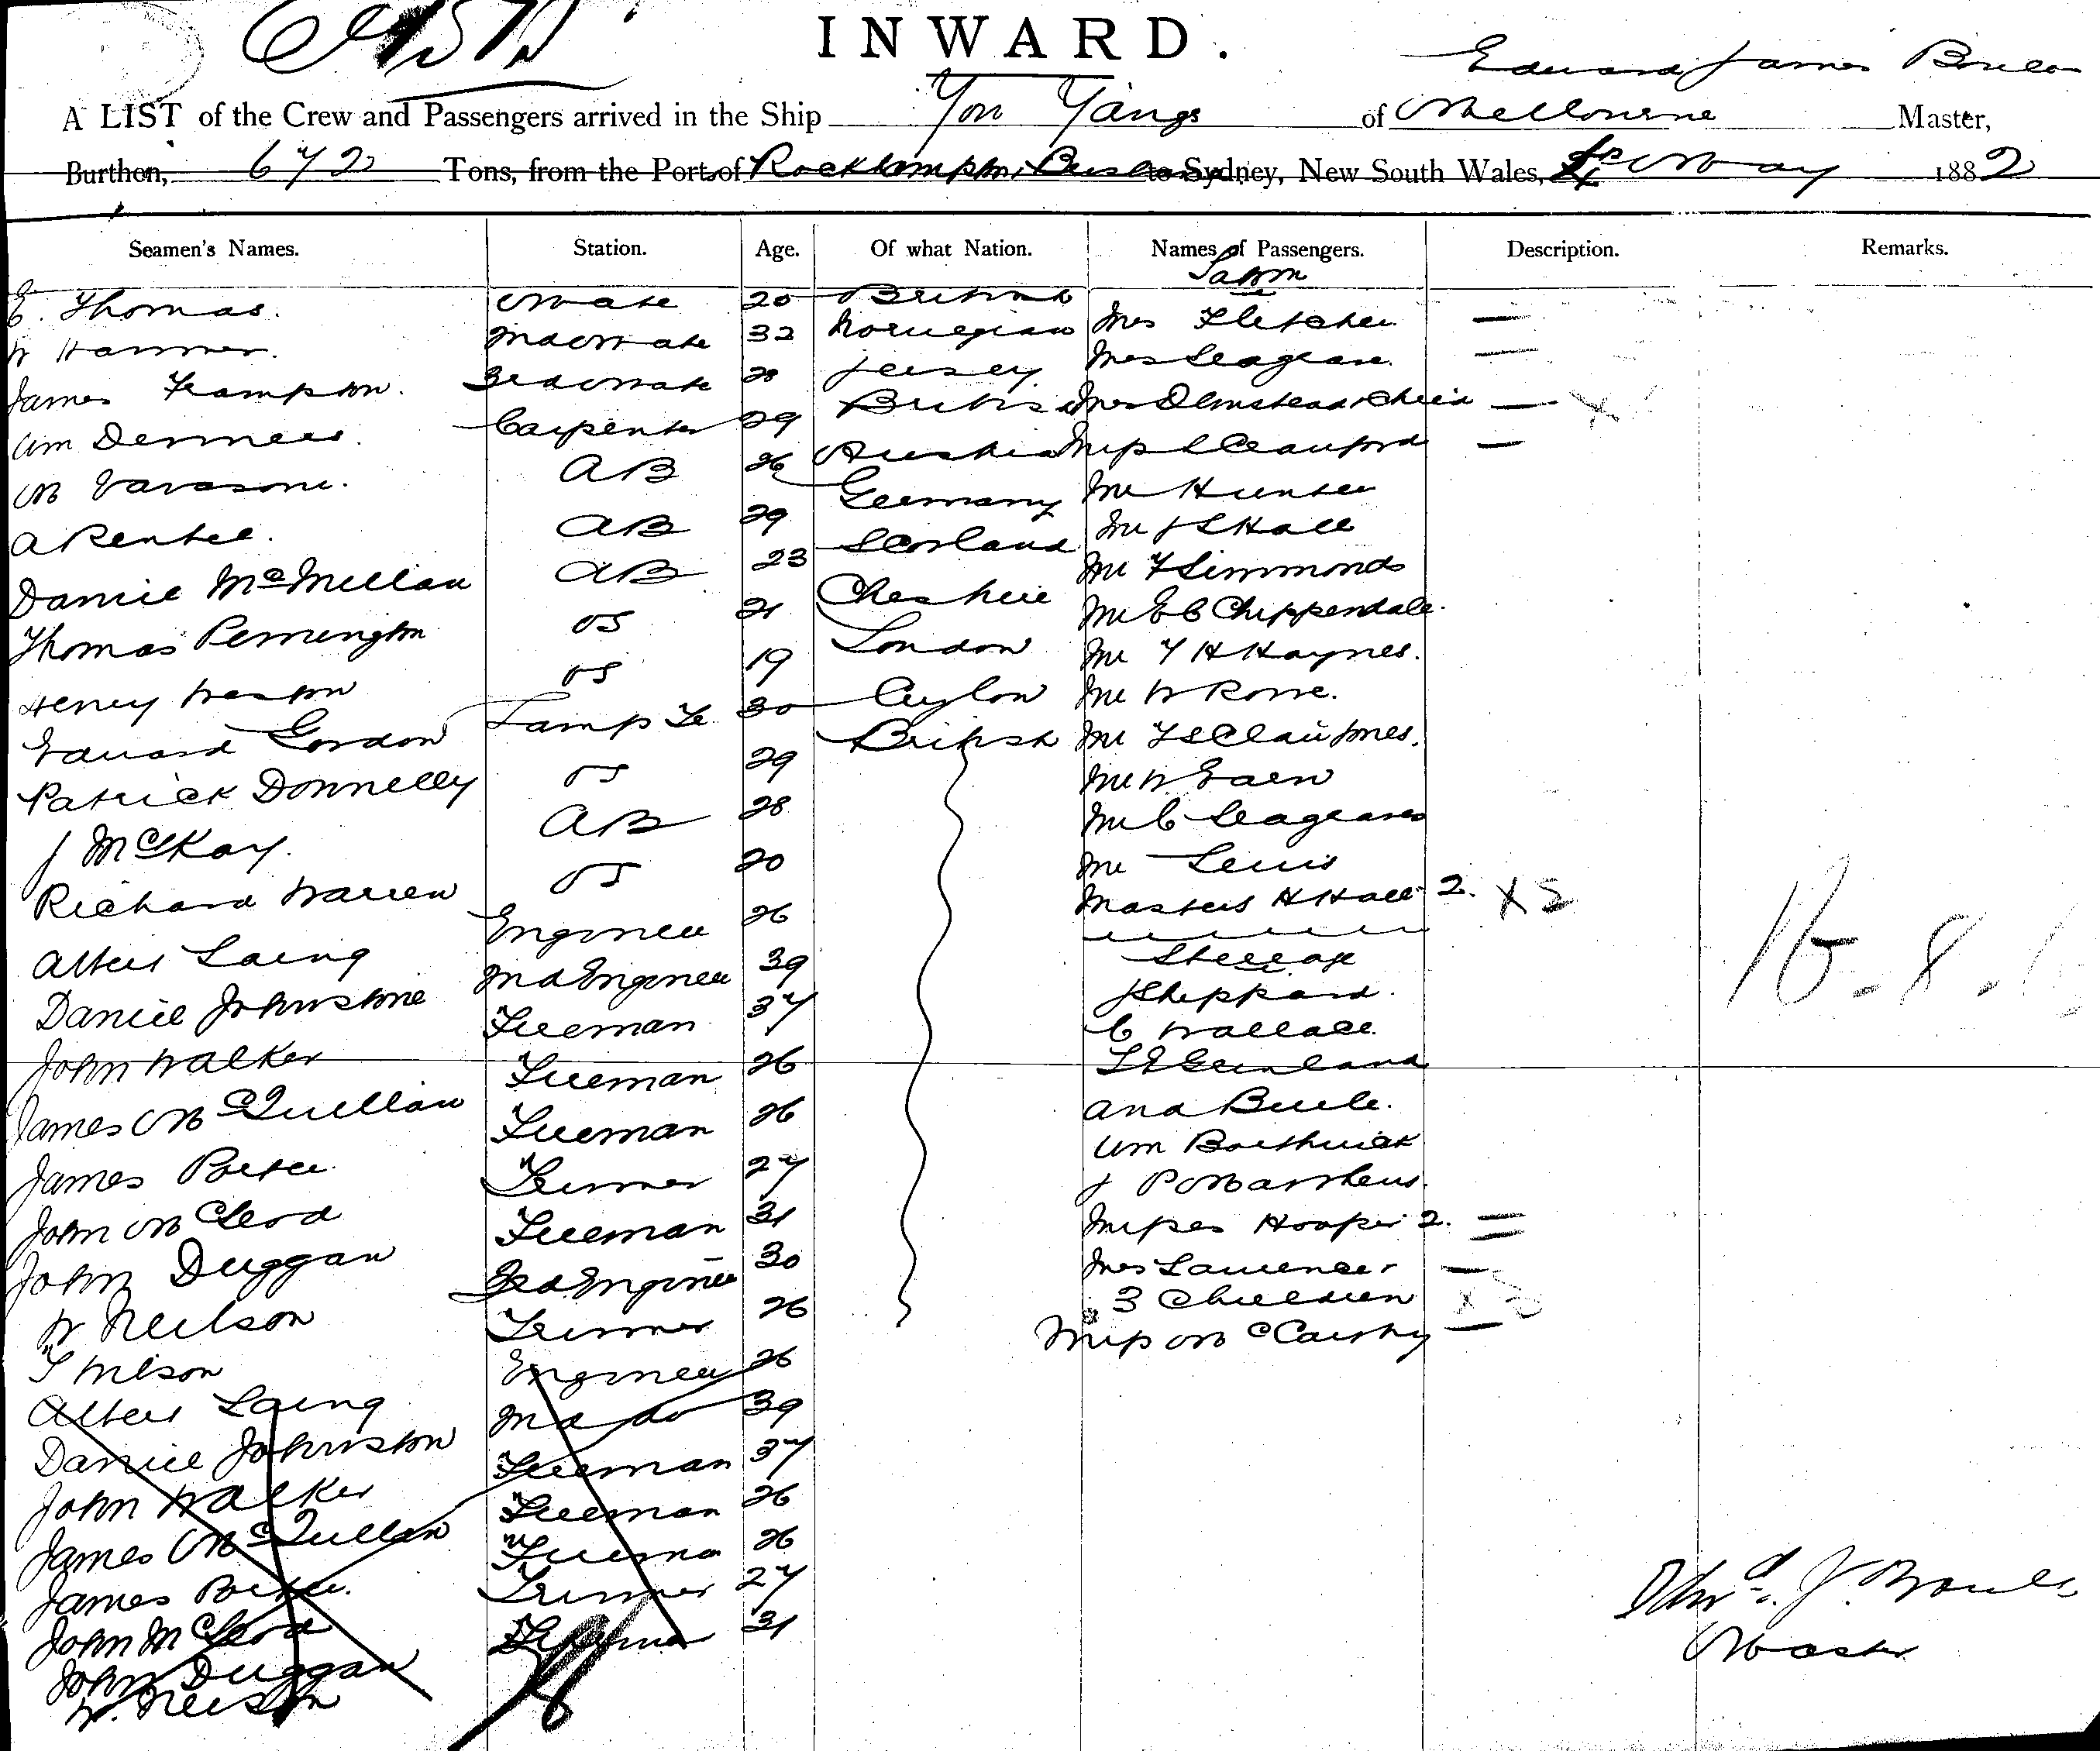 INWARD.
Edward James
A LIST of the Crew and Passengers arrived in the Ship You Yangs of Melbourne Master,
Burthen, 672 Tons, from the Port of Rockhampton, to Sydney, New South Wales, May 1882
Seamen's Names. Station. Age. Of what Nation. Names of Passengers. Description. Remarks.
Saloon
E. Thomas. Mate 20 British Mrs Fletcher —
W 2nd Mate 32 Norwegian Mrs Seagrave —
James Frampton. 3rd Mate 28 Jersey Mrs Olmstead & Child — X
Wm Carpenter 29 British Miss L Crauford —
M Vavasour. AB 26 Austria Mr Hunter
A Rentel. AB 29 Germany Mr J S Hall
Daniel McMillan AB 23 Scotland Mr F Simmonds
Thomas Pennington OS 21 Cheshire Mr E C Chippendale.
Henry Weston OS 19 London Mr T H Haynes.
Edward Gordon Lamp Tr 30 Ceylon Mr W Rowe.
Patrick Donnelly OS 29 British Mr F St Clair Jones.
J McKay. AB 28 Mr W
Richard Warren OS 20 Mr C Seagrave
Albert Laing Engineer 26 Mr Lewis
Daniel Johnstone 2nd Engineer 39 Masters H Hall 2. X 2
John Walker Fireman 37 Steerage
James McQuillan Fireman 26 J Sheppard.
James Porter Fireman 26 C Wallace.
John McLeod Trimmer 27 Greenland
John Duggan Fireman 31
W Neilson 3rd Engineer 30 Wm Borthwick
T Wilson Trimmer 26 J P Matthews.
Misses Hooper 2. =
Mrs Lawrence —
3 Children X 3
Miss McCarthy —
16.8.
Albert Laing Engineer 26
Daniel Johnston 2nd do 39
John Walker Fireman 37
James McQuillan Fireman 26
James Porter. Fireman 26
John McLeod Trimmer 27
John Duggan Fireman 31
W. Neilson
Edwd. J.
Master